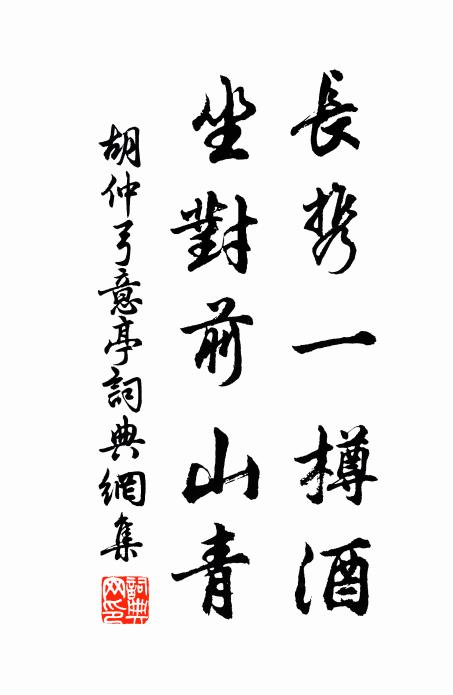 長携一樽酒
坐對前山青
胡仲弓意亭詞典網集
詞典網印